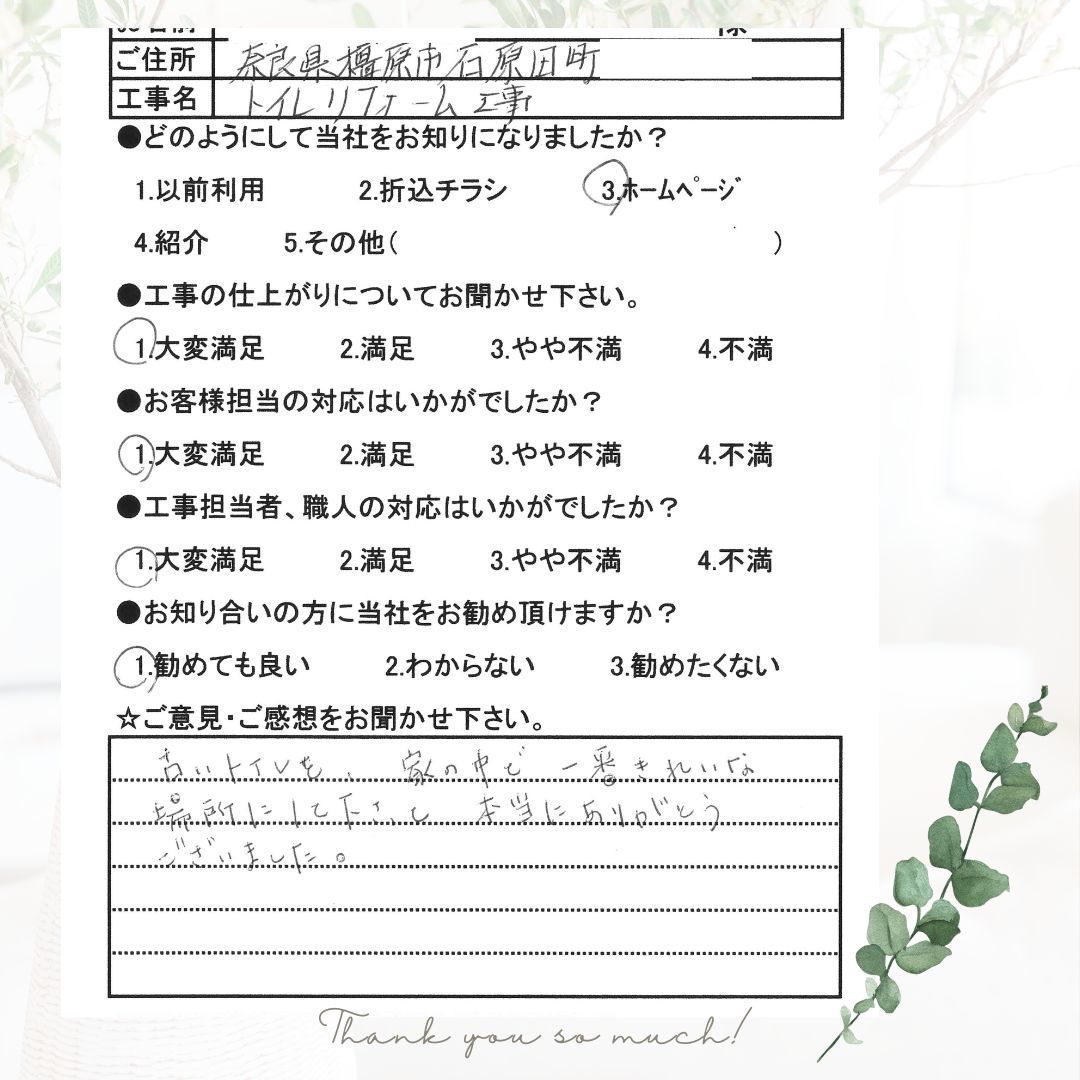 お名前 様
ご住所 奈良県橿原市石原田町
工事名 トイレリフォーム工事
●どのようにして当社をお知りになりましたか？
1.以前利用 2.折込チラシ 3.ﾎｰﾑﾍﾟｰｼﾞ
4.紹介 5.その他( )
●工事の仕上がりについてお聞かせ下さい。
1.大変満足 2.満足 3.やや不満 4.不満
●お客様担当の対応はいかがでしたか？
1.大変満足 2.満足 3.やや不満 4.不満
●工事担当者、職人の対応はいかがでしたか？
1.大変満足 2.満足 3.やや不満 4.不満
●お知り合いの方に当社をお勧め頂けますか？
1.勧めても良い 2.わからない 3.勧めたくない
☆ご意見・ご感想をお聞かせ下さい。
古いトイレを、家の中で一番きれいな
場所にして下さって本当にありがとう
ございました。
Thank you so much!